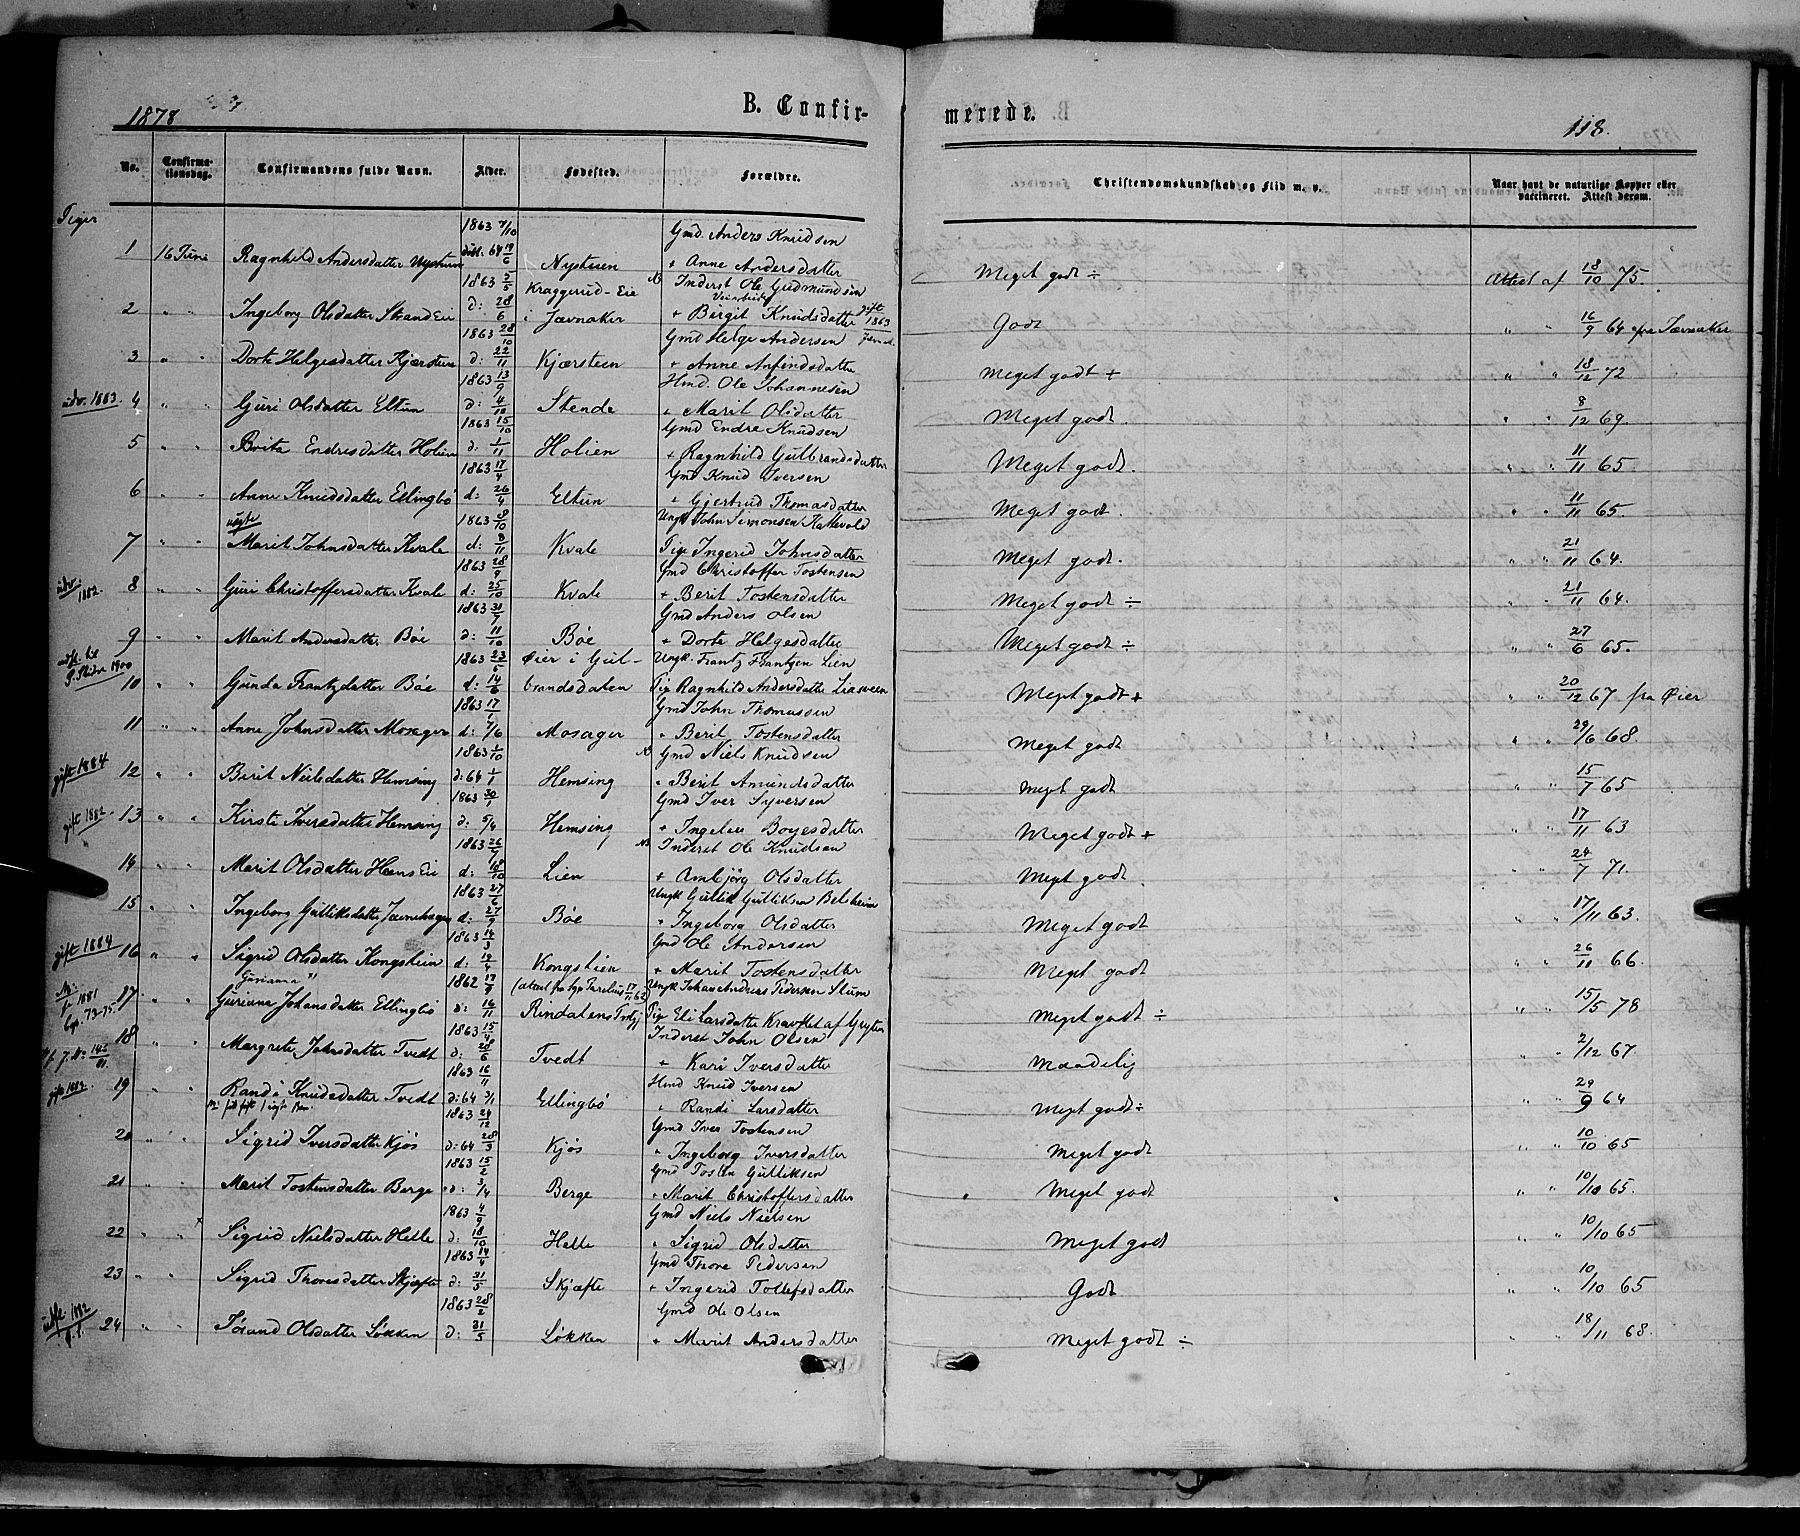 1878
B. Confir-
merede.
118.
No.
Confirma-
tionsdag.
Confirmandens fulde Navn.
Alder.
Fødested.
Forældre.
Christendomskundskab og Flid m. v.
Naar havt de naturlige Kopper eller
vaccineret. Attest derom.
Piger
1 16 Juni Ragnhild Andersdatter Nystuen 1863 7/10 Nystuen Gmd. Anders Knudsen + Anne Andersdatter Meget godt ÷ Attest af 18/10 75.
2 " " Ingeborg Olsdatter Strand Eie 1863 5/5 d: 28/6 Kraggerud-Eie i Jævnaker Inderst Ole Gudmundsen + Birgit Knudsdatter gift 1863 Godt " " 16/9 64 fra Jævnaker
3 " " Dorte Helgesdatter Kjørsteen 1863 28/10 d: 22/11 Kjærsteen Gmd Helge Andersen + Anne Anfindsdatter Meget godt + " " 18/12 72
udv. 1883. 4 " " Guri Olsdatter Eltun 1863 13/9 d: 4/10 Stende Hmd. Ole Johannesen + Marit Olsdatter Meget godt. " " 8/12 69.
5 " " Brita Endresdatter Holien 1863 15/10 d: 1/11 Holien Gmd Endre Knudsen + Ragnhild Gulbrandsdatter Meget godt. " " 11/11 65
6 " " Anne Knudsdatter Ellingbø 1863 17/4 d: 26/4 Eltun Gmd Knud Iversen + Gjertrud Thomasdatter Meget godt. " " 11/11 65.
7 " " uægte Marit Johnsdatter Kvale 1863 8/10 d: 8/11 Kvale Ungk John Simonsen Kattevold Pige Ingerid Johnsdatter Meget godt. " " 21/11 64.
udv. 1882. 8 " " Guri Christoffersdatter Kvale 1863 28/9 d: 25/10 Kvale Gmd Christoffer Tostensen + Berit Tostensdatter Meget godt ÷ " " 21/11 64.
9 " " Marit Andersdatter Bøe 1863 31/7 d: 11/10 Bøe Gmd Anders Olsen + Dorte Helgesdatter Meget godt ÷ " " 27/6 65.
10 " " Gunda Frantzdatter Bøe 1863 23/5 d: 14/6 Øier i Gulbrandsdalen Ungk. Frantz Frantzen Lien Pige Ragnhild Andersdatter Liasveen Meget godt + " " 20/12 67 fra Øier
11 " " Anne Johnsdatter Mosager 1863 17/ d: 7/6 Mosager Gmd John Thomassen + Berit Tostensdatter Meget godt " " 29/6 68.
gift 1884 12 " " Berit Nielsdatter Hemsing 1863 1/10 d: 64 1/1 Hemsing Gmd Niels Knudsen + Berit Amundsdatter Meget godt " " 15/7 65
gift 1882. 13 " " Kirsti Iversdatter Hemsing 1863 30/1 d: 5/4 Hemsing Gmd Iver Syversen + Ingeleu Boyesdatter Meget godt + " " 17/11 63
14 " " Marit Olsdatter Hæns Eie 1863 26/ d: 18/10 Lien Inderst Ole Knudsen + Ambjørg Olsdatter Meget godt. " " 24/7 71.
15 " " Ingeborg Gulliksdatter Jævnehagen 1863 27/6 d: 27/9 Bøe Ungk Gullik Gulliksen Belsheim + Ingeborg Olsdatter Meget godt " " 17/11 63.
gift 1884 16 " " Sigrid Olsdatter Kongslien 1863 14/3 d: 19/4 Kongslien Gmd Ole Andersen + Marit Tostensdatter Meget godt " " 26/11 66.
17 " " Guriana Johansdatter Ellingbø 1862 17/9 d: 16/11 Rindalens Ungk Johan Andreas Pedersen Stum Pige Eli Larsdatter Meget godt ÷ " " 15/5 78
18 " " Margrete Johnsdatter Tvedt 1863 15/4 d: 28/6 Tvedt Inderst John Olsen + Kari Iversdatter Maadelig " " 2/12 67.
gift 1882. 19 " " Randi Knudsdatter Tvedt 1863 16/11 d: 64 3/1 Ellingbø Hmd Knud Iversen + Randi Larsdatter Meget godt ÷ " " 29/9 64
20 " " Sigrid Iversdatter Kjøs 1863 24/12 d: 64 28/3 Kjøs Gmd Iver Tostensen + Ingeborg Iversdatter Meget godt " " 10/10 65
21 " " Marit Tostensdatter Berge 1863 15/2 d: 3/4 Berge Gmd Tosten Gulliksen + Marit Christoffersdatter Meget godt " " 10/10 65.
22 " " Sigrid Nielsdatter Helle 1863 4/9 d: 18/10 Helle Gmd Niels Nielsen + Sigrid Olsdatter Meget godt " " 10/10 65
23 " " Sigrid Thoresdatter Skjæfte 1863 14/4 d: 31/5 Skjæfte Gmd Thore Pedersen + Ingerid Tollefsdatter Godt " " 10/10 65
24 " " Jørand Olsdatter Løkken 1863 28/2 d: 31/5 Løkken Gmd Ole Olsen + Marit Andersdatter Meget godt ÷ " " 18/11 68.